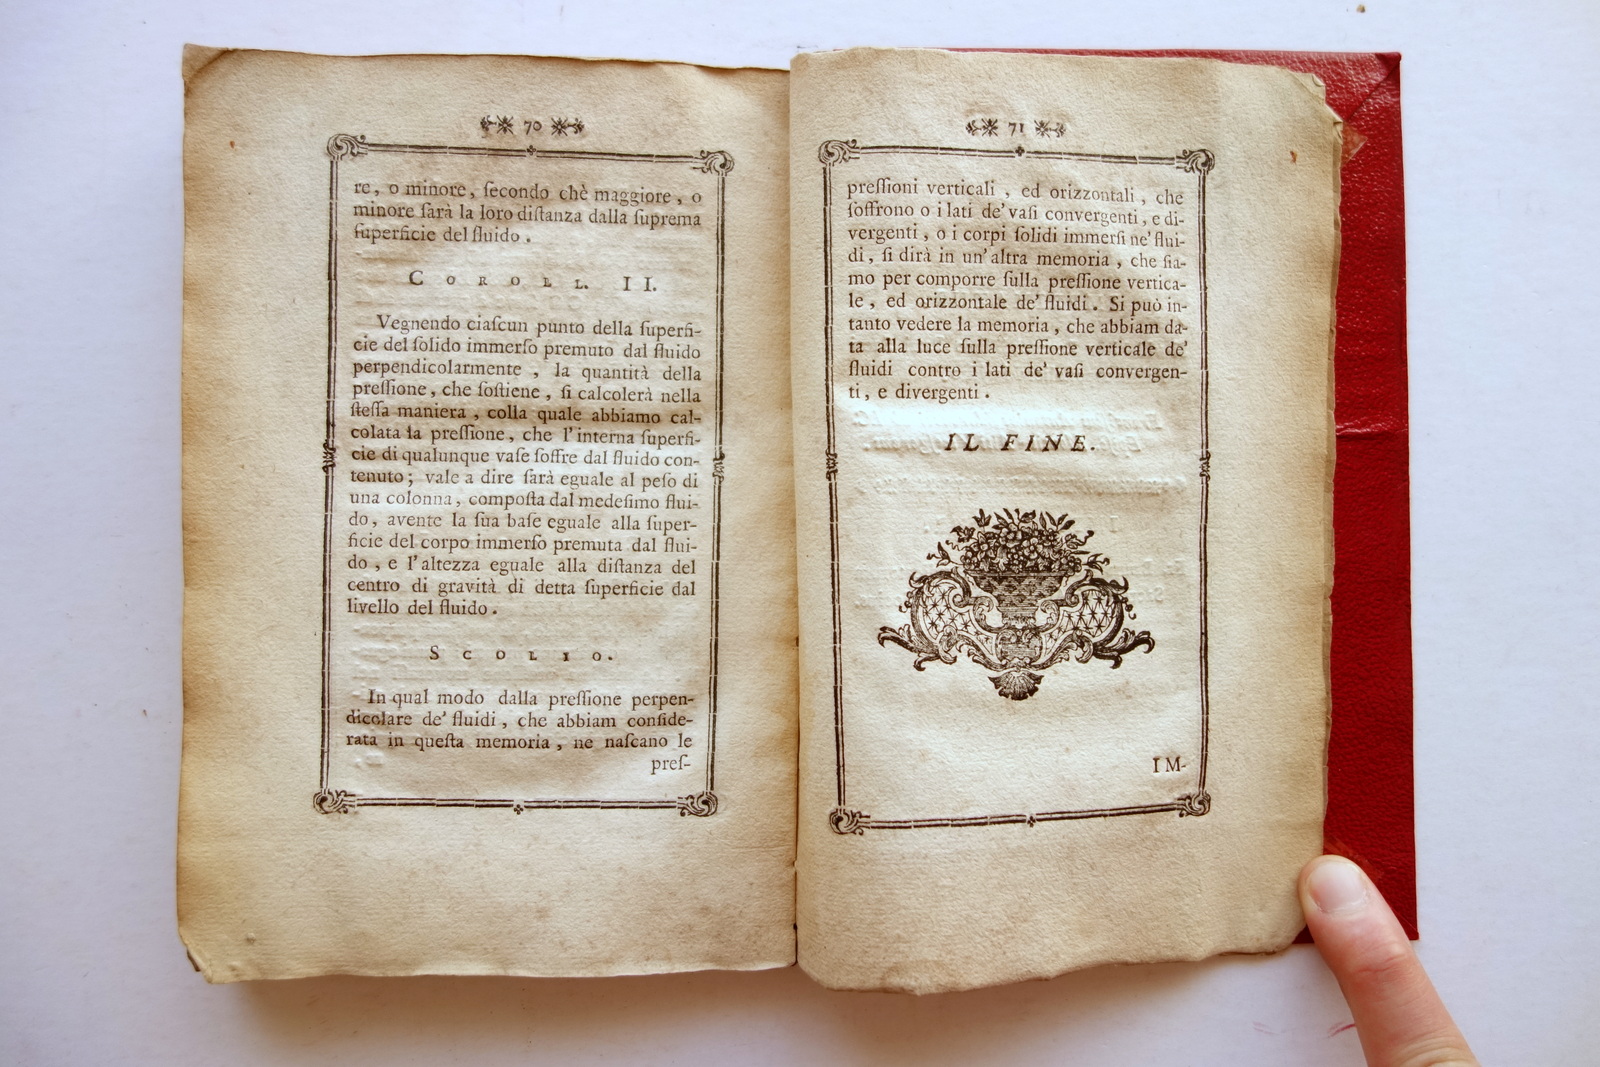 70
re, o minore, ſecondo chè maggiore, o
minore ſarà la loro diſtanza dalla ſuprema
ſuperficie del fluido.
COROLL. II.
Vegnendo ciaſcun punto della ſuperfi-
cie del ſolido immerſo premuto dal fluido
perpendicolarmente, la quantità della
preſſione, che ſoſtiene, ſi calcolerà nella
ſteſſa maniera, colla quale abbiamo cal-
colata la preſſione, che l'interna ſuperfi-
cie di qualunque vaſe ſoffre dal fluido con-
tenuto; vale a dire ſarà eguale al peſo di
una colonna, compoſta dal medeſimo flui-
do, avente la ſua baſe eguale alla ſuper-
ficie del corpo immerſo premuta dal flui-
do, e l'altezza eguale alla diſtanza del
centro di gravità di detta ſuperficie dal
livello del fluido.
SCOLIO.
In qual modo dalla preſſione perpen-
dicolare de' fluidi, che abbiam conſide-
rata in queſta memoria, ne naſcano le
preſ-
71
preſſioni verticali, ed orizzontali, che
ſoffrono o i lati de' vaſi convergenti, e di-
vergenti, o i corpi ſolidi immerſi ne' flui-
di, ſi dirà in un' altra memoria, che ſia-
mo per comporre ſulla preſſione vertica-
le, ed orizzontale de' fluidi. Si può in-
tanto vedere la memoria, che abbiam da-
ta alla luce ſulla preſſione verticale de'
fluidi contro i lati de' vaſi convergen-
ti, e divergenti.
IL FINE.
IM-